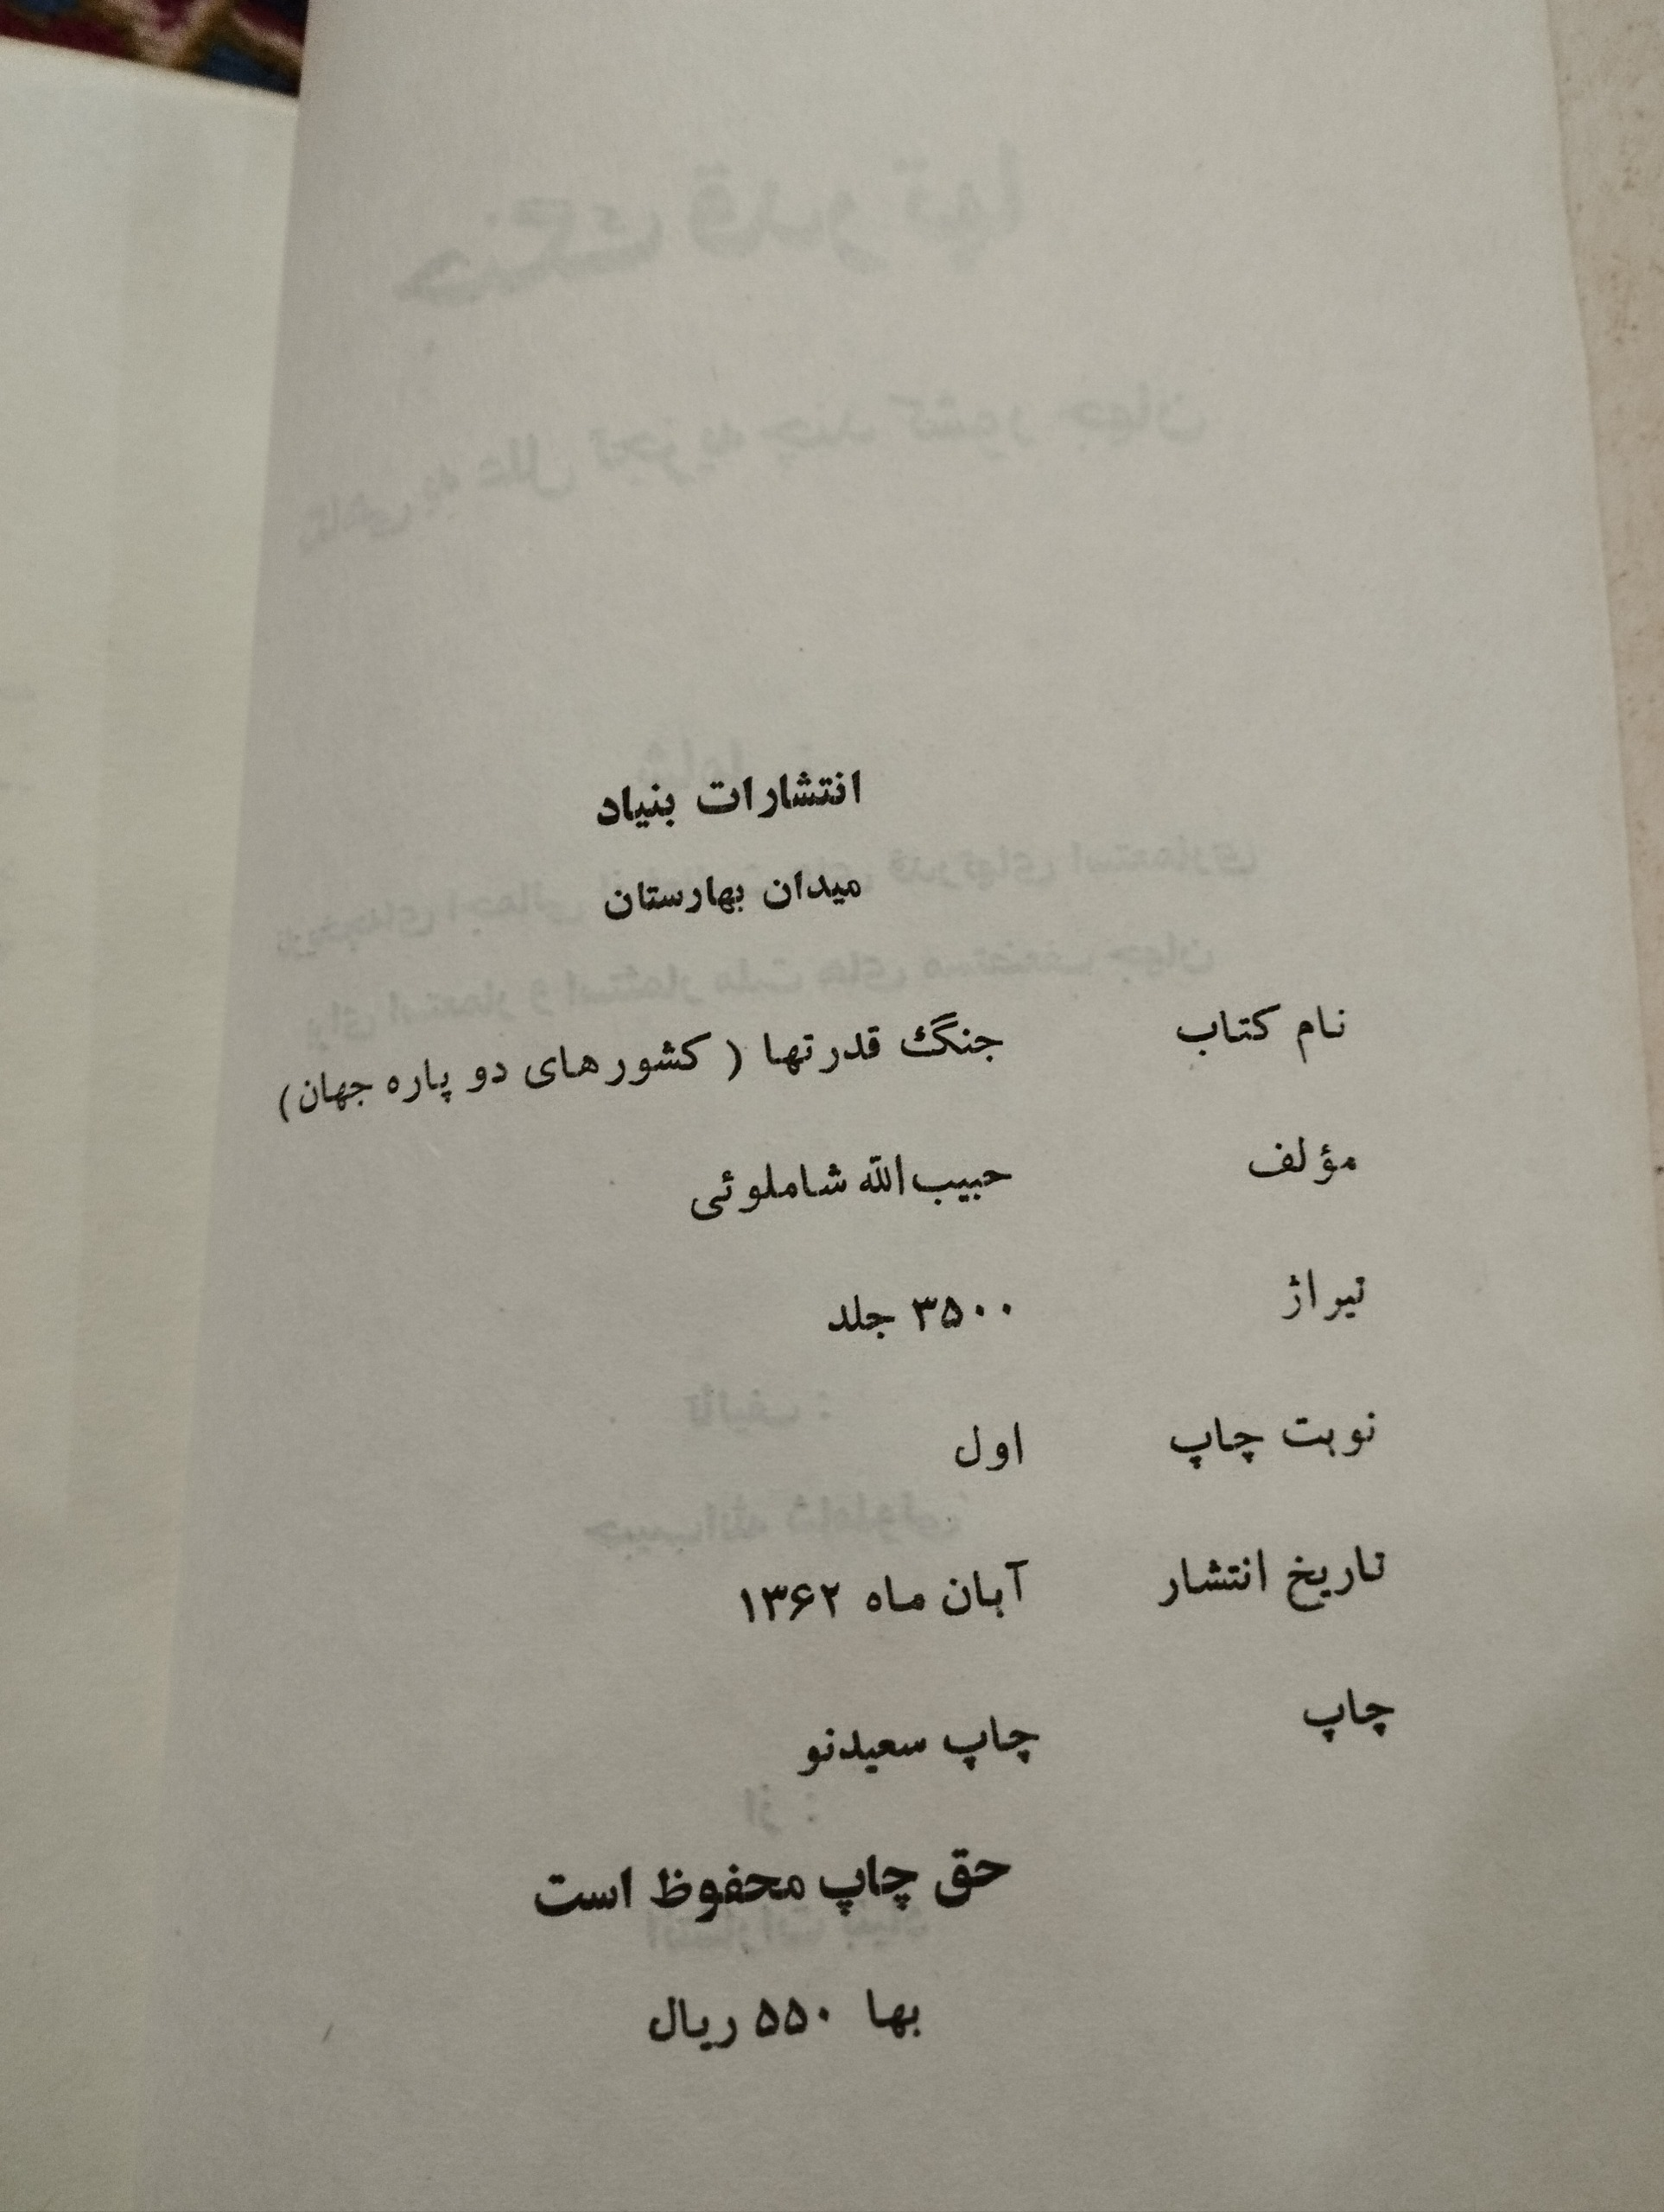 انتشارات بنیاد
میدان بهارستان
نام کتاب جنگ قدرتها ( کشورهای دو پاره جهان)
مؤلف حبیب‌الله شاملوئی
تیراژ ۳۵۰۰ جلد
نوبت چاپ اول
تاریخ انتشار آبان ماه ۱۳۶۲
چاپ چاپ سعیدنو
حق چاپ محفوظ است
بها ۵۵۰ ریال